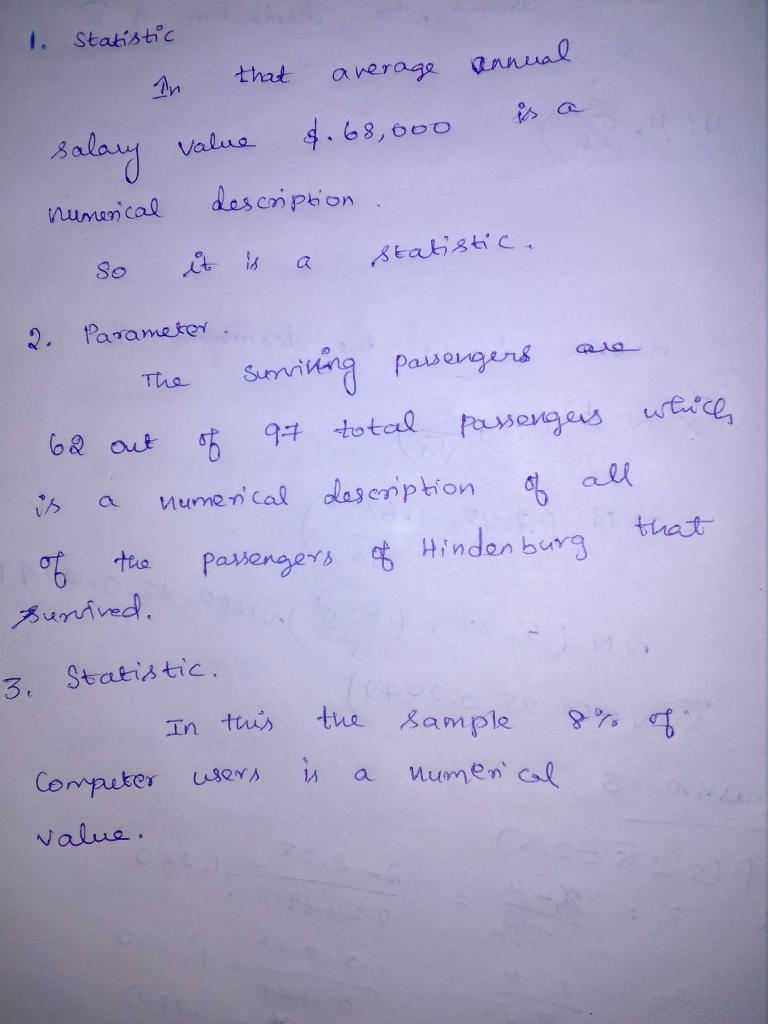 1. Statistic
In that average annual
salary value $.68,000 is a
numerical description.
So it is a statistic.
2. Parameter.
The surviving passengers are
62 out of 97 total passengers which
is a numerical description of all
of the passengers of Hindenburg that
survived.
3. Statistic.
In this the sample 8% of
Computer users is a numerical
value.